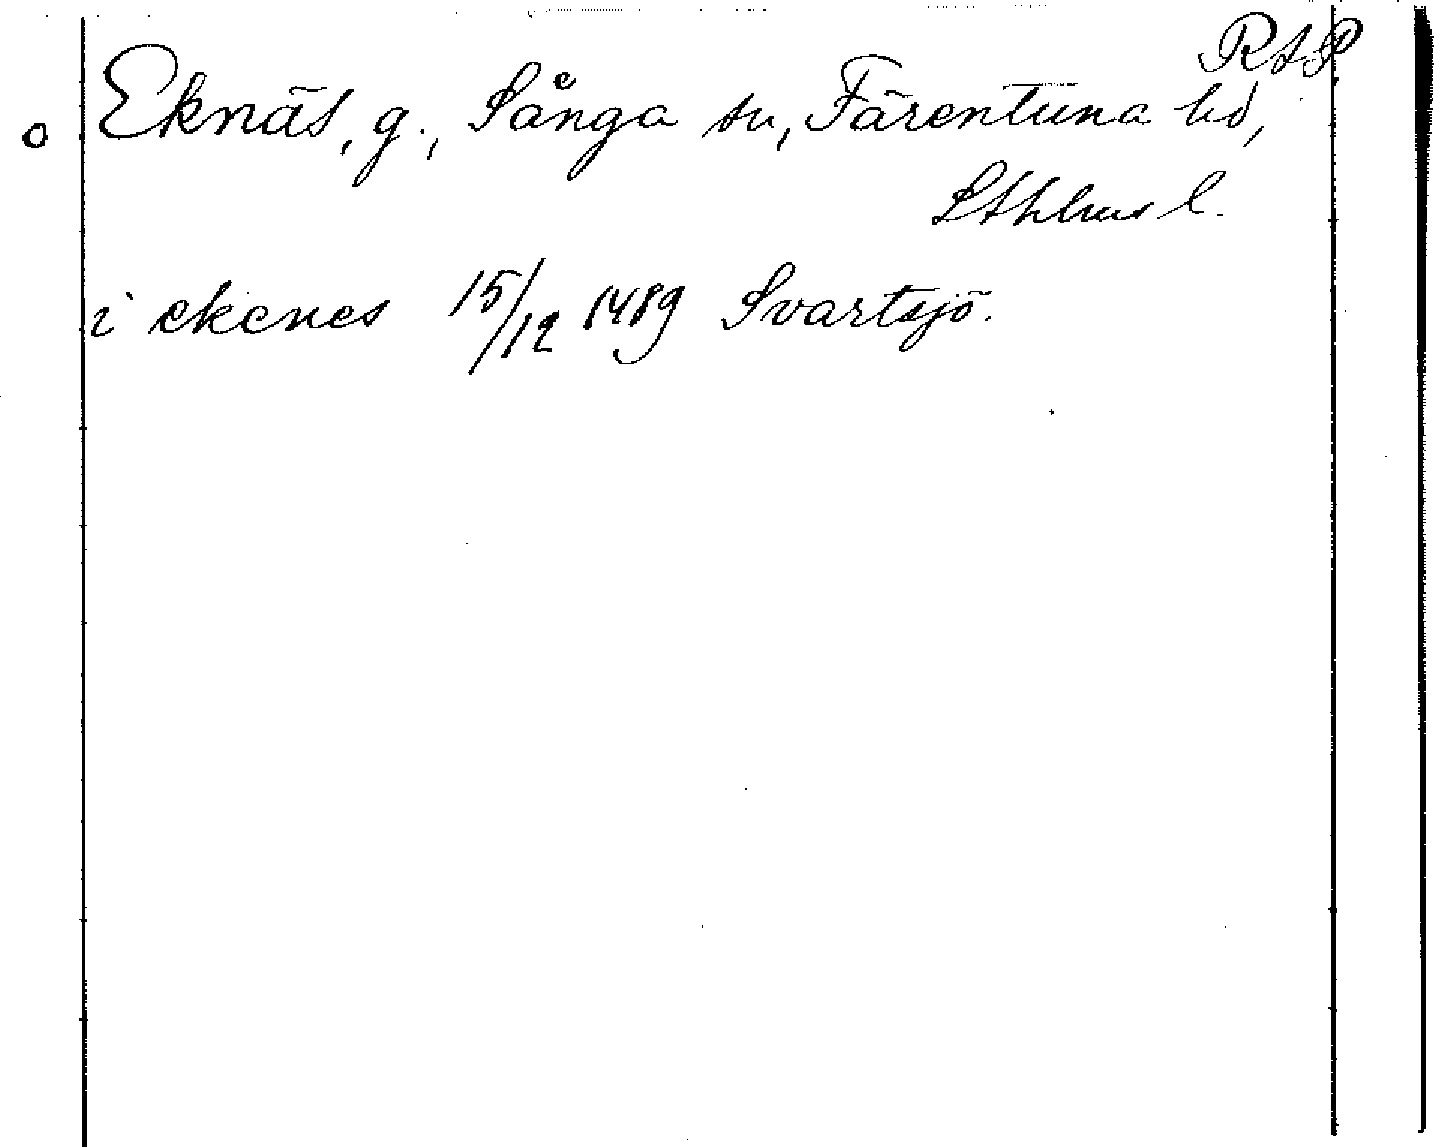 RAP
Eknäs, g., Sånga sn, Färentuna hd,
Sthlms l.
i ekenes 15/12 1489 Svartsjö.